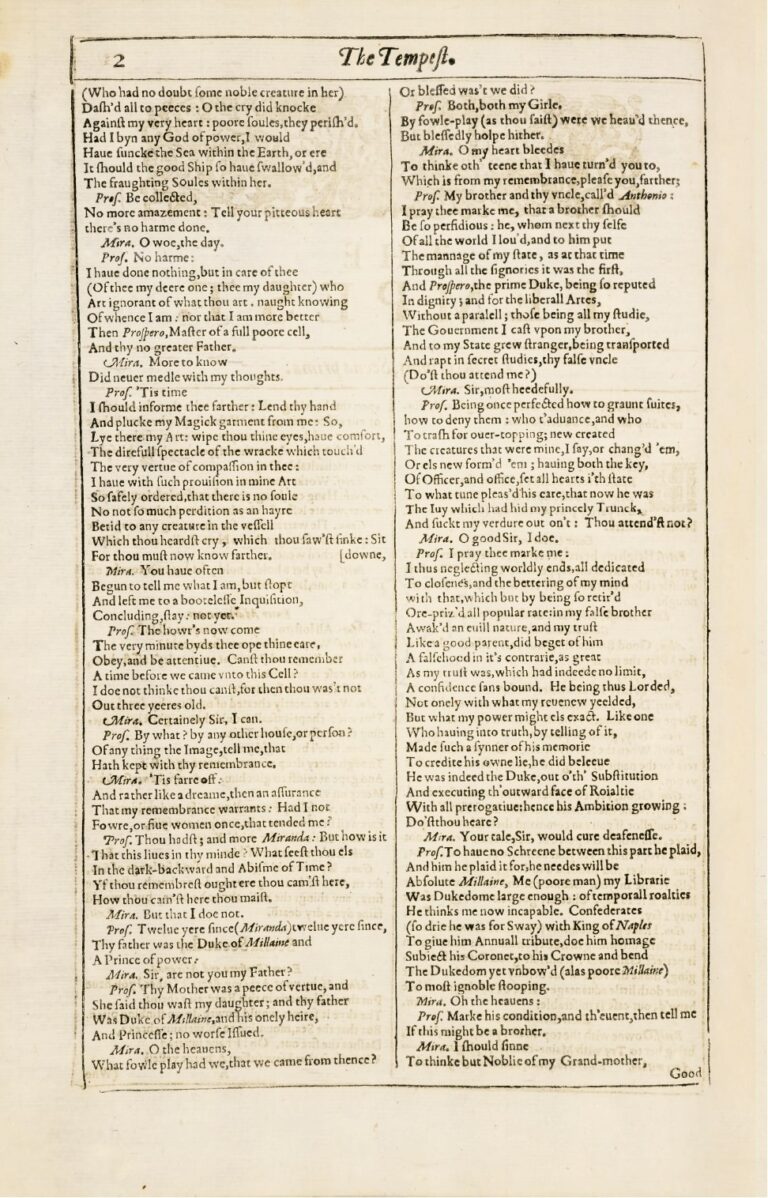 2
The Tempeſt.
(Who had no doubt ſome noble creature in her)
Daſh'd all to peeces : O the cry did knocke
Againſt my very heart : poore ſoules, they periſh'd.
Had I byn any God of power, I would
Haue ſuncke the Sea within the Earth, or ere
It ſhould the good Ship ſo haue ſwallow'd, and
The fraughting Soules within her.
Proſ. Be collected,
No more amazement : Tell your pitteous heart
there's no harme done.
Mira. O woe, the day.
Proſ. No harme:
I haue done nothing, but in care of thee
(Of thee my deere one ; thee my daughter) who
Art ignorant of what thou art . naught knowing
Of whence I am : nor that I am more better
Then Proſpero, Maſter of a full poore cell,
And thy no greater Father.
Mira. More to know
Did neuer medle with my thoughts.
Proſ. 'Tis time
I ſhould informe thee farther : Lend thy hand
And plucke my Magick garment from me : So,
Lye there my Art: wipe thou thine eyes, haue comfort,
The direfull ſpectacle of the wracke which touch'd
The very vertue of compaſſion in thee :
I haue with ſuch prouiſion in mine Art
So ſafely ordered, that there is no ſoule
No not ſo much perdition as an hayre
Betid to any creature in the veſſell
Which thou heardſt cry , which thou ſaw'ſt ſinke : Sit
For thou muſt now know farther. [downe,
Mira. You haue often
Begun to tell me what I am, but ſtopt
And left me to a booteleſſe Inquiſition,
Concluding, ſtay : not yet.
Proſ. The howr's now come
The very minute byds thee ope thine eare,
Obey, and be attentiue. Canſt thou remember
A time before we came vnto this Cell ?
I doe not thinke thou canſt, for then thou was't not
Out three yeeres old.
Mira. Certainely Sir, I can.
Proſ. By what ? by any other houſe, or perſon ?
Of any thing the Image, tell me, that
Hath kept with thy remembrance.
Mira. 'Tis farre off :
And rather like a dreame, then an aſſurance
That my remembrance warrants : Had I not
Fowre, or fiue women once, that tended me ?
Proſ. Thou hadſt ; and more Miranda : But how is it
That this liues in thy minde ? What ſeeſt thou els
In the dark-backward and Abiſme of Time ?
Yf thou remembreſt ought ere thou cam'ſt here,
How thou cam'ſt here thou maiſt.
Mira. But that I doe not.
Proſ. Twelue yere ſince (Miranda) twelue yere ſince,
Thy father was the Duke of Millaine and
A Prince of power :
Mira. Sir, are not you my Father ?
Proſ. Thy Mother was a peece of vertue, and
She ſaid thou waſt my daughter ; and thy father
Was Duke of Millaine, and his onely heire,
And Princeſſe ; no worſe Iſſued.
Mira. O the heauens,
What fowle play had we, that we came from thence ?
Or bleſſed was't we did ?
Proſ. Both, both my Girle.
By fowle-play (as thou ſaiſt) were we heau'd thence,
But bleſſedly holpe hither.
Mira. O my heart bleedes
To thinke oth' teene that I haue turn'd you to,
Which is from my remembrance, pleaſe you, farther;
Proſ. My brother and thy vncle, call'd Anthonio :
I pray thee marke me, that a brother ſhould
Be ſo perfidious : he, whom next thy ſelfe
Of all the world I lou'd, and to him put
The mannage of my ſtate , as at that time
Through all the ſignories it was the firſt,
And Proſpero, the prime Duke, being ſo reputed
In dignity ; and for the liberall Artes,
Without a paralell ; thoſe being all my ſtudie,
The Gouernment I caſt vpon my brother,
And to my State grew ſtranger, being tranſported
And rapt in ſecret ſtudies, thy falſe vncle
(Do'ſt thou attend me ?)
Mira. Sir, moſt heedefully.
Proſ. Being once perfected how to graunt ſuites,
how to deny them : who t'aduance, and who
To traſh for ouer-topping ; new created
The creatures that were mine, I ſay, or chang'd 'em,
Or els new form'd 'em ; hauing both the key,
Of Officer, and office, ſet all hearts i'th ſtate
To what tune pleas'd his care, that now he was
The Iuy which had hid my princely Trunck,
And ſuckt my verdure out on't : Thou attend'ſt not ?
Mira. O good Sir, I doe.
Proſ. I pray thee marke me :
I thus neglecting worldly ends, all dedicated
To cloſenes, and the bettering of my mind
with that, which but by being ſo retir'd
Ore-priz'd all popular rate : in my falſe brother
Awak'd an euill nature, and my truſt
Like a good parent, did beget of him
A falſehood in it's contrarie, as great
As my truſt was, which had indeede no limit,
A confidence ſans bound. He being thus Lorded,
Not onely with what my reuenew yeelded,
But what my power might els exact. Like one
Who hauing into truth, by telling of it,
Made ſuch a ſynner of his memorie
To credite his owne lie, he did beleeue
He was indeed the Duke, out o'th' Subſtitution
And executing th'outward face of Roialtie
With all prerogatiue : hence his Ambition growing :
Do'ſt thou heare ?
Mira. Your tale, Sir, would cure deafeneſſe.
Proſ. To haue no Schreene between this part he plaid,
And him he plaid it for, he needes will be
Absolute Millaine, Me (poore man) my Librarie
Was Dukedome large enough : of temporall roalties
He thinks me now incapable. Confederates
(ſo drie he was for Sway) with King of Naples
To giue him Annuall tribute, doe him homage
Subiect his Coronet, to his Crowne and bend
The Dukedom yet vnbow'd (alas poore Millaine)
To moſt ignoble ſtooping.
Mira. Oh the heauens :
Proſ. Marke his condition, and th'euent, then tell me
If this might be a brother.
Mira. I ſhould ſinne
To thinke but Noblie of my Grand-mother,
Good